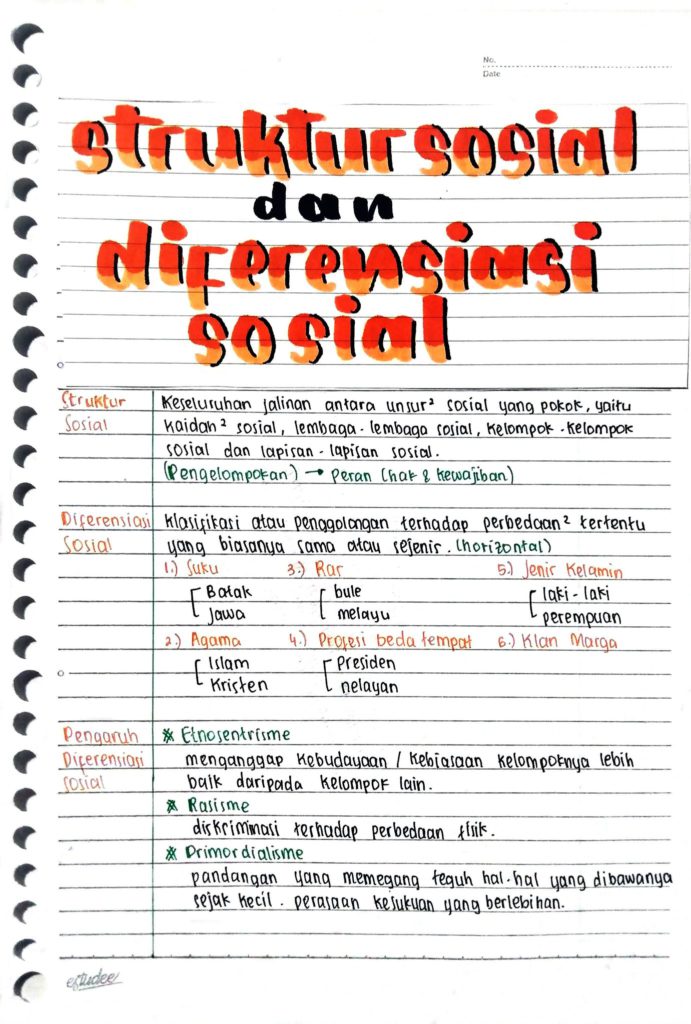 No.
Date
struktur sosial
dan
diferensiasi
sosial
Struktur Sosial
Keseluruhan jalinan antara unsur² sosial yang pokok, yaitu
kaidah² sosial, lembaga-lembaga sosial, kelompok-kelompok
sosial dan lapisan-lapisan sosial.
(Pengelompokan) → Peran (hak & kewajiban)
Diferensiasi Sosial
Klasifikasi atau penggolongan terhadap perbedaan² tertentu
yang biasanya sama atau sejenis. (horizontal)
1.) Suku
Batak
Jawa
2.) Agama
Islam
Kristen
3.) Ras
bule
melayu
4.) Profesi beda tempat
Presiden
nelayan
5.) Jenis Kelamin
laki-laki
perempuan
6.) Klan Marga
Pengaruh
Diferensiasi
sosial
* Etnosentrisme
menganggap kebudayaan / kebiasaan kelompoknya lebih
baik daripada kelompok lain.
* Rasisme
diskriminasi terhadap perbedaan fisik.
* Primordialisme
pandangan yang memegang teguh hal-hal yang dibawanya
sejak kecil. perasaan kesukuan yang berlebihan.
estudee